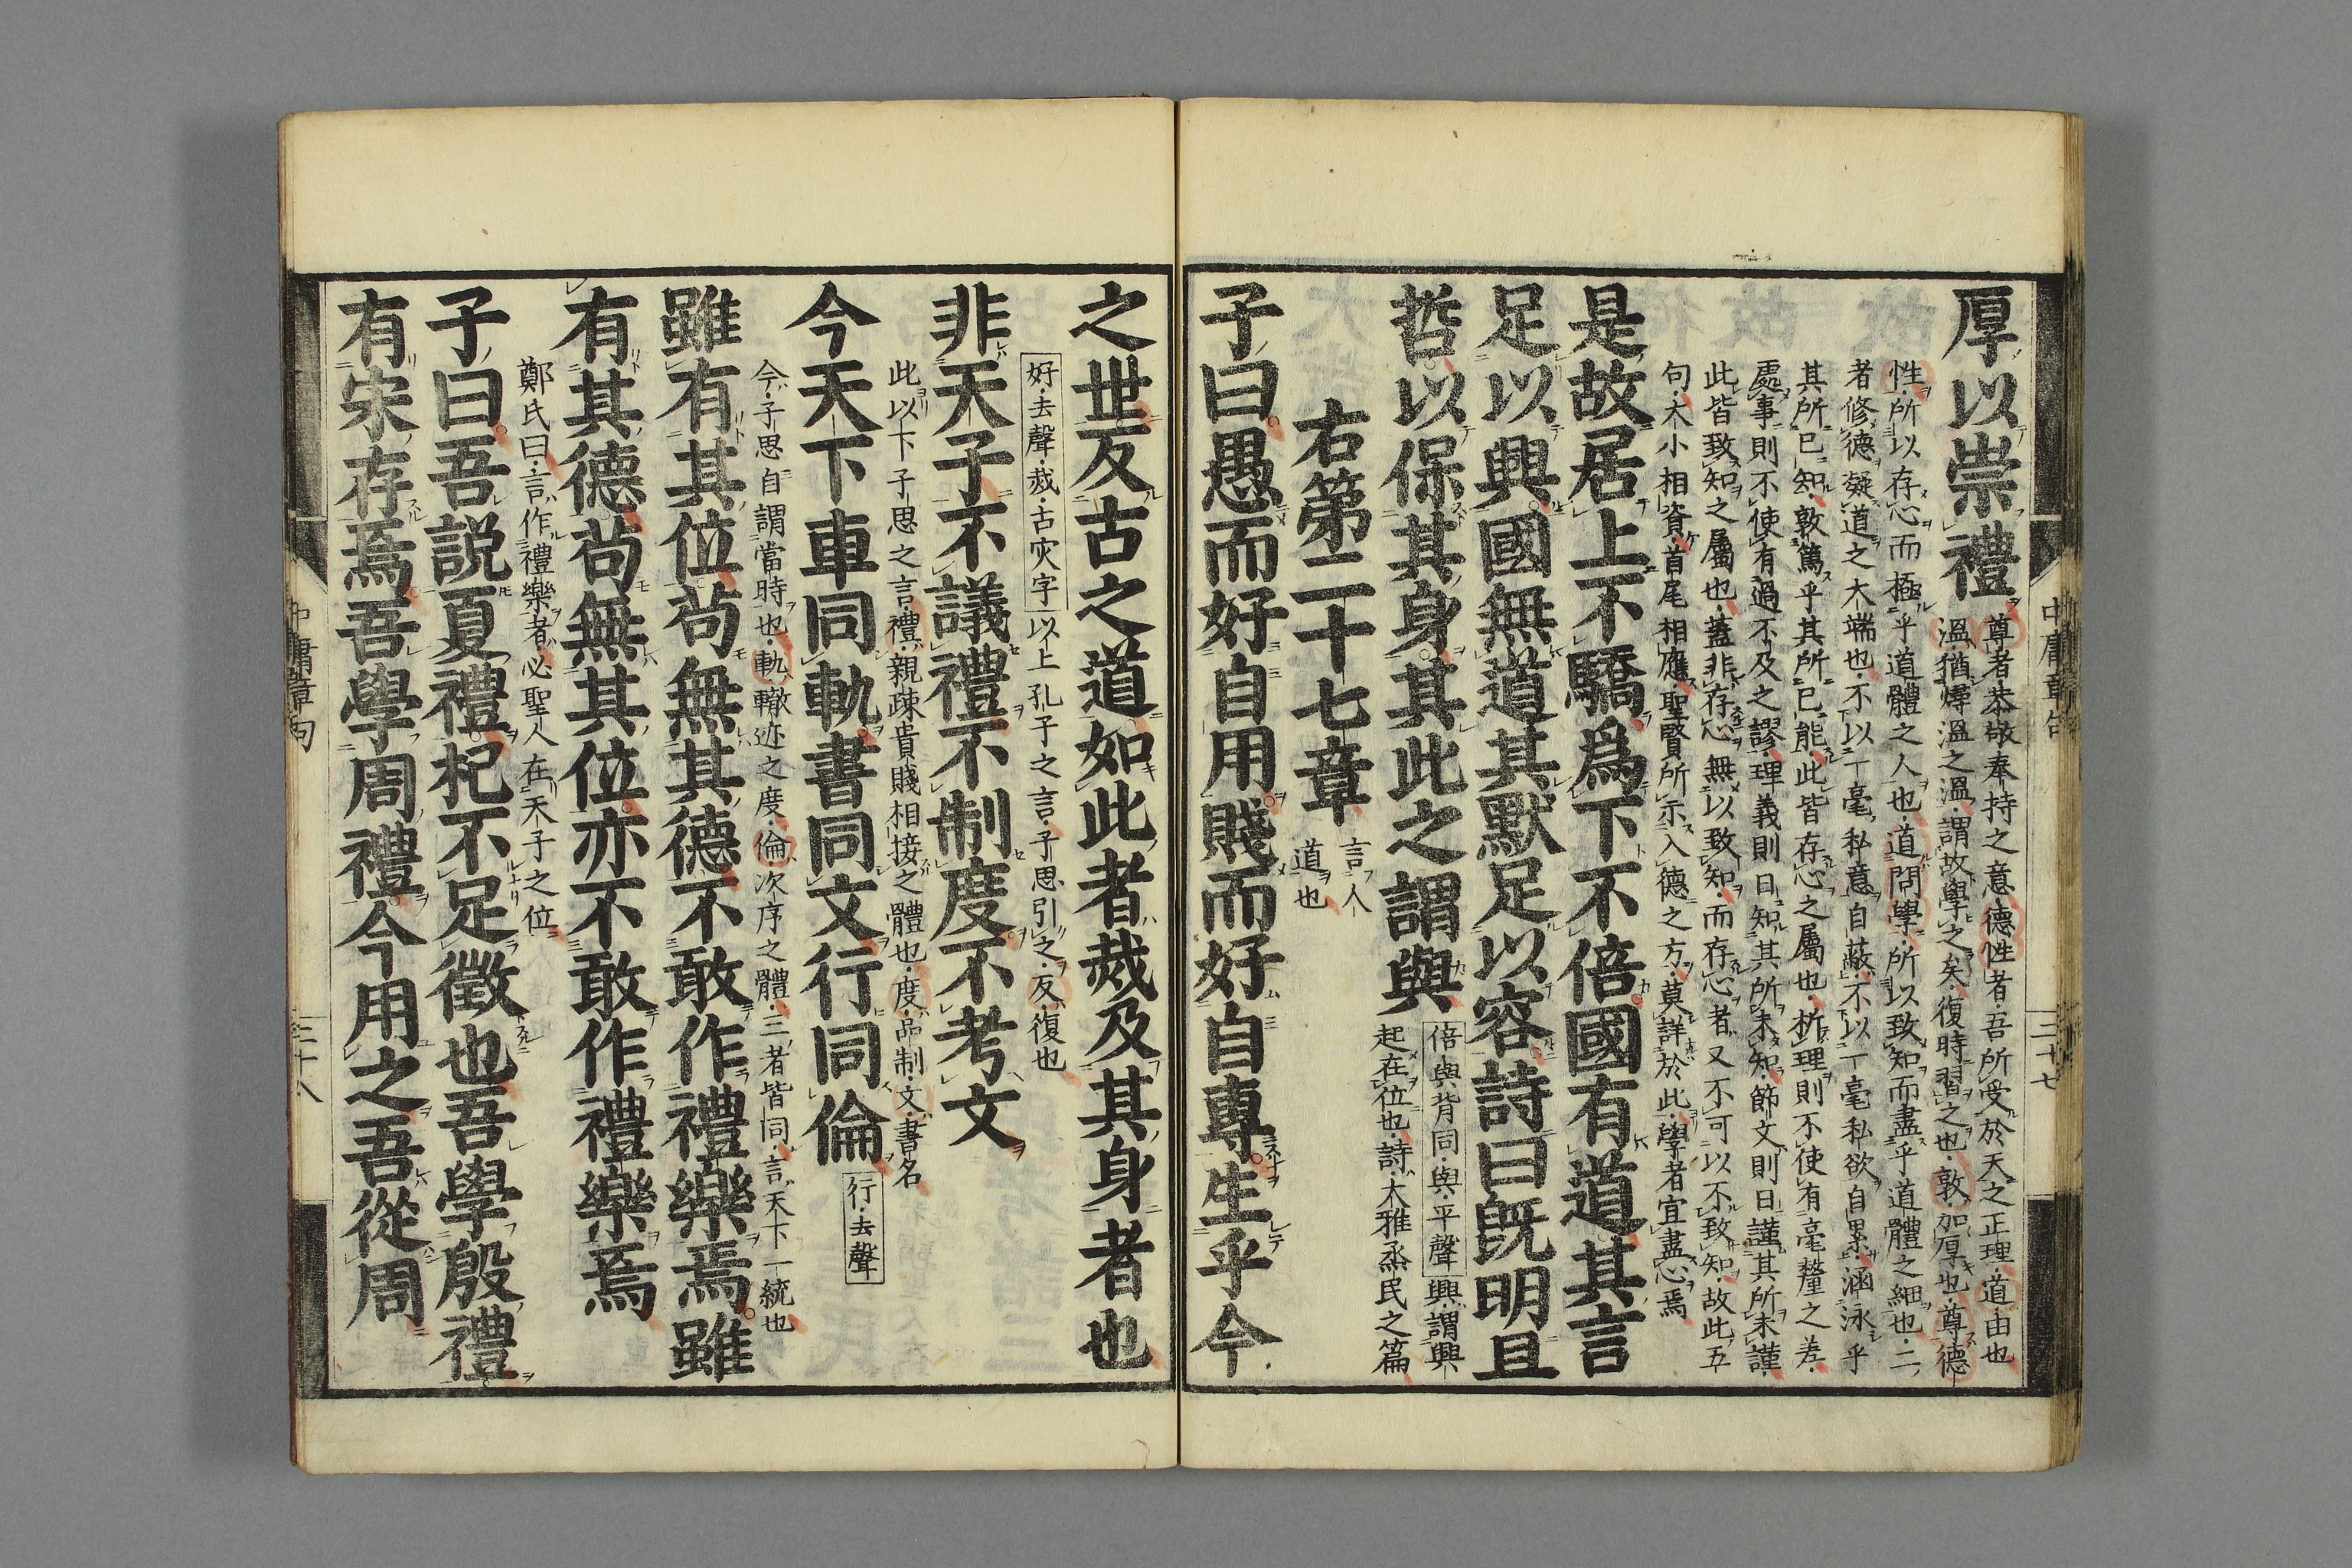 厚以崇禮
尊者恭敬奉持之意德性者吾所受於天之正理道由也
溫猶燖溫之溫謂故學之矣復時習之也敦加厚也尊德
性所以存心而極乎道體之大也道問學所以致知而盡乎道體之細也二
者修德凝道之大端也不以一毫私意自蔽不以一毫私欲自累涵泳乎
其所已知敦篤乎其所已能此皆存心之屬也析理則不使有毫釐之差
處事則不使有過不及之謬理義則日知其所未知節文則日謹其所未謹
此皆致知之屬也蓋非存心無以致知而存心者又不可以不致知故此五
句大小相資首尾相應聖賢所示入德之方莫詳於此學者宜盡心焉
是故居上不驕爲下不倍國有道其言
足以興國無道其默足以容詩曰旣明且
哲以保其身其此之謂與
倍與背同與平聲興謂興
起在位也詩大雅烝民之篇
右第二十七章
言人
道也
子曰愚而好自用賤而好自專生乎今
中庸章句
二十七
之世反古之道如此者烖及其身者也
好去聲烖古灾字以上孔子之言子思引之反復也
非天子不議禮不制度不考文
此以下子思之言禮親疎貴賤相接之體也度品制文書名
今天下車同軌書同文行同倫
行去聲
今子思自謂當時也軌轍迹之度倫次序之體三者皆同言天下一統也
雖有其位苟無其德不敢作禮樂焉雖
有其德苟無其位亦不敢作禮樂焉
鄭氏曰言作禮樂者必聖人在天子之位
子曰吾説夏禮杞不足徵也吾學殷禮
有宋存焉吾學周禮今用之吾從周
中庸章句
二十八